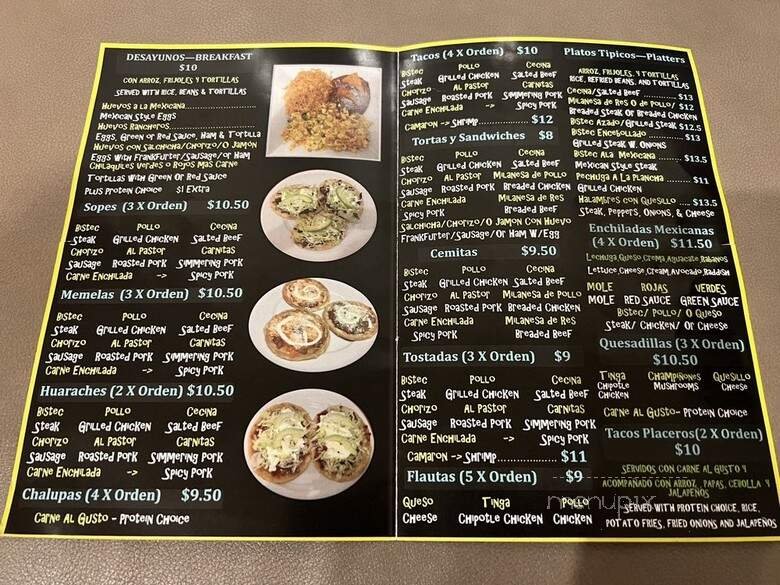 DESAYUNOS—BREAKFAST
$10
CON ARROZ, FRIJOLES Y TORTILLAS
SERVED WITH RICE, BEANS & TORTILLAS
HUEVOS A LA MEXICANA
MEXICAN STYLE EGGS
HUEVOS RANCHEROS
EGGS, GREEN OR RED SAUCE, HAM & TORTILLA
HUEVOS CON SALCHICHA/CHORIZO/O JAMÓN
EGGS WITH FRANKFURTER/SAUSAGE/OR HAM
CHILAQUILES VERDES O ROJOS MAS CARNE
TORTILLAS WITH GREEN OR RED SAUCE
PLUS PROTEIN CHOICE $1 EXTRA
Sopes (3 X Orden) $10.50
BISTEC POLLO CECINA
STEAK GRILLED CHICKEN SALTED BEEF
CHORIZO AL PASTOR CARNITAS
SAUSAGE ROASTED PORK SIMMERING PORK
CARNE ENCHILADA -> SPICY PORK
Memelas (3 X Orden) $10.50
BISTEC POLLO CECINA
STEAK GRILLED CHICKEN SALTED BEEF
CHORIZO AL PASTOR CARNITAS
SAUSAGE ROASTED PORK SIMMERING PORK
CARNE ENCHILADA -> SPICY PORK
Huaraches (2 X Orden) $10.50
BISTEC POLLO CECINA
STEAK GRILLED CHICKEN SALTED BEEF
CHORIZO AL PASTOR CARNITAS
SAUSAGE ROASTED PORK SIMMERING PORK
CARNE ENCHILADA -> SPICY PORK
Chalupas (4 X Orden) $9.50
CARNE AL GUSTO - PROTEIN CHOICE
Tacos (4 X Orden) $10
BISTEC POLLO CECINA
STEAK GRILLED CHICKEN SALTED BEEF
CHORIZO AL PASTOR CARNITAS
SAUSAGE ROASTED PORK SIMMERING PORK
CARNE ENCHILADA -> SPICY PORK
CAMARON -> SHRIMP............ $12
Tortas y Sandwiches $8
BISTEC POLLO CECINA
STEAK GRILLED CHICKEN SALTED BEEF
CHORIZO AL PASTOR MILANESA DE POLLO
SAUSAGE ROASTED PORK BREADED CHICKEN
CARNE ENCHILADA MILANESA DE RES
SPICY PORK BREADED BEEF
SALCHICHA/CHORIZO/O JAMON CON HUEVO
FRANKFURTER/SAUSAGE/OR HAM W/EGG
Cemitas $9.50
BISTEC POLLO CECINA
STEAK GRILLED CHICKEN SALTED BEEF
CHORIZO AL PASTOR MILANESA DE POLLO
SAUSAGE ROASTED PORK BREADED CHICKEN
CARNE ENCHILADA MILANESA DE RES
SPICY PORK BREADED BEEF
Tostadas (3 X Orden) $9
BISTEC POLLO CECINA
STEAK GRILLED CHICKEN SALTED BEEF
CHORIZO AL PASTOR CARNITAS
SAUSAGE ROASTED PORK SIMMERING PORK
CARNE ENCHILADA -> SPICY PORK
CAMARON -> SHRIMP.................. $11
Flautas (5 X Orden) $9
QUESO TINGA POLLO
CHEESE CHIPOTLE CHICKEN CHICKEN
Platos Tipicos—Platters
ARROZ, FRIJOLES, Y TORTILLAS
RICE, REFRIED BEANS, AND TORTILLAS
CECINA/SALTED BEEF ........... $13
MILANESA DE RES O DE POLLO/ $12
BREADED STEAK OR BREADED CHICKEN
BISTEC AZADO/GRILLED STEAK $12.5
BISTEC ENCEBOLLADO ........ $13
GRILLED STEAK W. ONIONS
BISTEC ALA MEXICANA ....... $13.5
MEXICAN STYLE STEAK
PECHUGA A LA PLANCHA ...... $11
GRILLED CHICKEN
HALAMBRES CON QUESILLO ... $13.5
STEAK, PEPPERS, ONIONS, & CHEESE
Enchiladas Mexicanas
(4 X Orden) $11.50
LECHUGA, QUESO, CREMA, AGUACATE, RABANOS
LETTUCE CHEESE CREAM, AVOCADO, RADDISH
MOLE ROJAS VERDES
MOLE RED SAUCE GREEN SAUCE
BISTEC/ POLLO/ O QUESO
STEAK/ CHICKEN/ OR CHEESE
Quesadillas (3 X Orden)
$10.50
TINGA CHAMPIÑONES QUESILLO
CHIPOTLE MUSHROOMS CHEESE
CHICKEN
CARNE AL GUSTO- PROTEIN CHOICE
Tacos Placeros(2 X Orden)
$10
SERVIDOS CON CARNE AL GUSTO Y
ACOMPAÑADO CON ARROZ , PAPAS, CEBOLLA Y
JALAPEÑOS
SERVED WITH PROTEIN CHOICE, RICE,
POTATO FRIES, FRIED ONIONS AND JALAPEÑOS
menupix